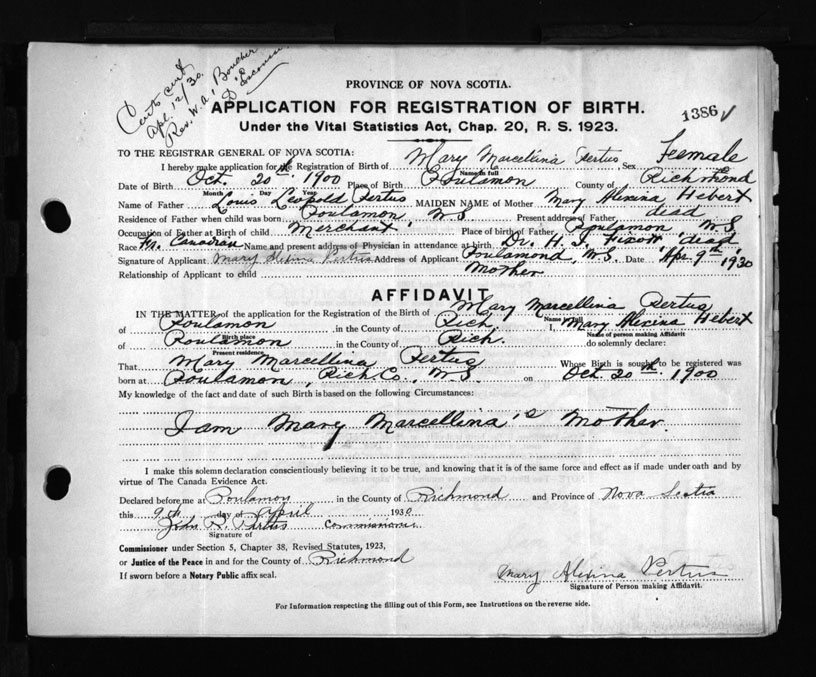 Certs sent
Apl. 12/30.
Rev. W. A. Boucher
D'Escousse
PROVINCE OF NOVA SCOTIA.
APPLICATION FOR REGISTRATION OF BIRTH.
1386
Under the Vital Statistics Act, Chap. 20, R. S. 1923.
TO THE REGISTRAR GENERAL OF NOVA SCOTIA:
I hereby make application for the Registration of Birth of Mary Marcellina Pertus Sex Feemale
Name in full
Date of Birth Oct 20th 1900 Place of Birth Poulamon County of Richmond
Month Day Year
Name of Father Louis Leopold Pertus MAIDEN NAME of Mother Mary Alexina Hebert
Residence of Father when child was born Poulamon N.S Present address of Father dead
Occupation of Father at Birth of child Merchant Place of birth of Father Poulamon, N.S
Race Fr. Canadian Name and present address of Physician in attendance at birth Dr. H. J. "dead"
Signature of Applicant Mary Alexina Pertus Address of Applicant Poulamond, N.S. Date Apr. 9th 1930
Relationship of Applicant to child Mother
AFFIDAVIT
IN THE MATTER of the application for the Registration of the Birth of Mary Marcellina Pertus
Name in full
of Poulamon in the County of Rich. I, Mary Alexina Hebert
Birth place Name of person making Affidavit
of Poulamon in the County of Rich. do solemnly declare:
Present residence
That Mary Marcellina Pertus Whose Birth is sought to be registered was
born at Poulamon, Rich Co., N.S. on Oct 20th. 1900
My knowledge of the fact and date of such Birth is based on the following Circumstances:
I am Mary Marcellina's Mother.
I make this solemn declaration conscientiously believing it to be true, and knowing that it is of the same force and effect as if made under oath and by
virtue of The Canada Evidence Act.
Declared before me at Poulamon in the County of Richmond and Province of Nova Scotia
this 9th day of April 1930
John R. Pertus Commissioner
Signature of
Commissioner under Section 5, Chapter 38, Revised Statutes, 1923,
or Justice of the Peace in and for the County of Richmond
If sworn before a Notary Public affix seal.
Mary Alexina Pertus
Signature of Person making Affidavit.
For Information respecting the filling out of this Form, see Instructions on the reverse side.